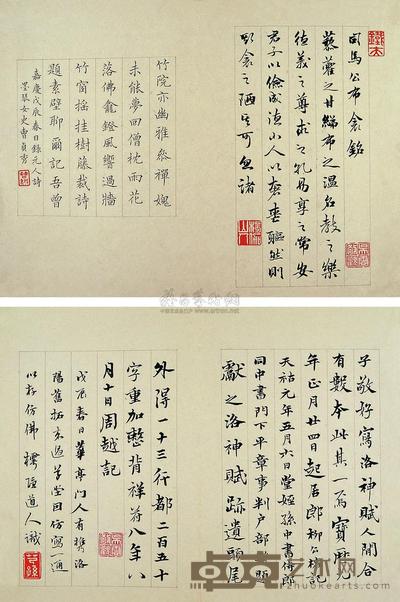 司馬公布衾銘
藜藿之甘綈布之溫名教之樂
德義之尊求之孔易享之常安
君子以儉成德小人以奢喪軀然則
斯衾之陋其可忽諸
竹院亦幽雅參禪媿
未能夢回僧枕雨花
落佛龕鐙風響過牆
竹窗搖挂樹藤裁詩
題素壁聊爾記吾曾
嘉慶戊辰春日錄元人詩
墨琴女史曹貞秀
子敬好寫洛神賦人間合
有數本此其一焉寶曆元
年正月廿四日起居郎柳公權記
天祐元年五月六日堂姪孫中書侍郎
同中書門下平章事判戶部
獻之洛神賦跡遺頭尾
外得一十三行都二百五十
字重加褫背祥符八年八
月十日周越記
戊辰春日華亭門人有攜洛
陽舊拓來過 堂因仿寫一通
以存仿佛 道人識